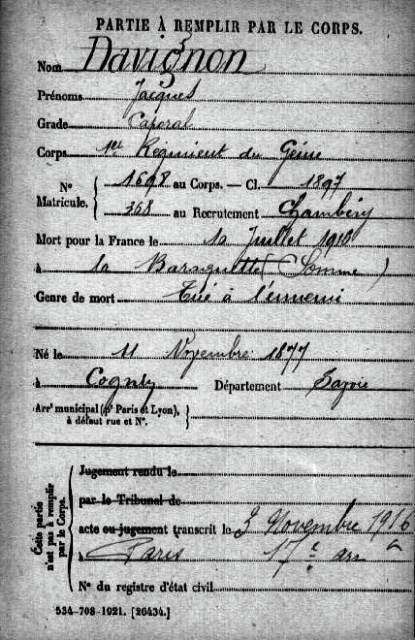 PARTIE À REMPLIR PAR LE CORPS.
Nom Davignon
Prénoms Jacques
Grade Caporal
Corps 1er Régiment du Génie
N° Matricule. { 1698 au Corps. — Cl. 1897
368 au Recrutement Chambéry
Mort pour la France le 10 Juillet 1916
à la Baraquette (Somme)
Genre de mort Tué à l'ennemi
Né le 11 Novembre 1877
à Département Savoie
Arrt municipal (pr Paris et Lyon), à défaut rue et N°. }
Cette partie n'est pas à remplir par le Corps.
Jugement rendu le
par le Tribunal de
acte ou jugement transcrit le 3 Novembre 1916
à Paris 17e arrt
N° du registre d'état civil
534-708-1921. [26434.]